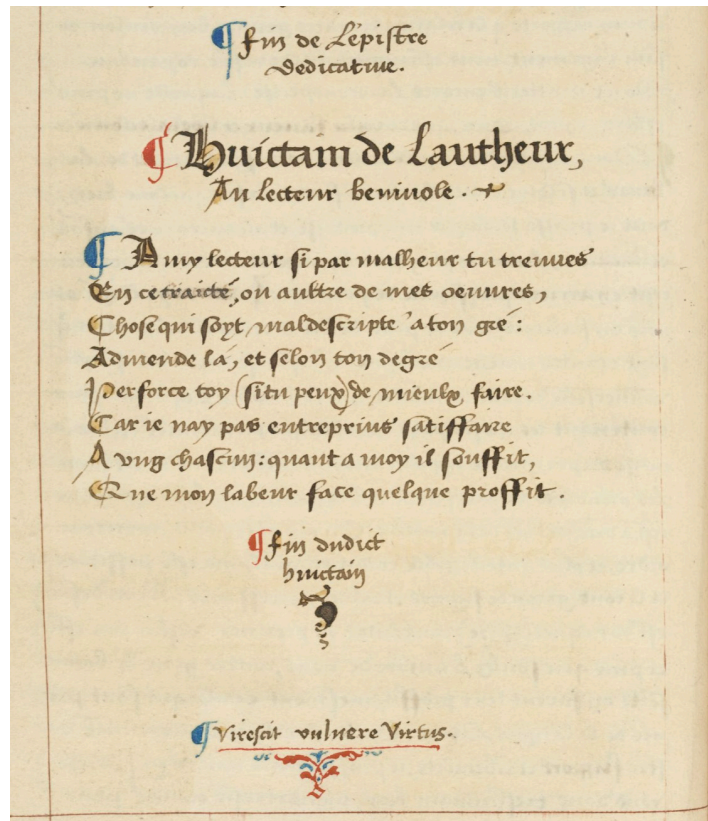 ¶ Fin de Lepistre
Dedicative.
¶ Huictain de Lautheur,
Au Lecteur benivole.
¶ Amy lecteur si par malheur tu treuves
En ce traicté, ou aultre de mes oeuvres,
Chose qui soyt maldescripte a ton gré:
Admende lá, et selon ton degré
Perforce toy (si tu peux) de mieulx faire.
Car ie nay pas entreprins satiffaire
A ung chascun: quant a moy il souffit,
Que mon labeur face quelque proffit.
¶ Fin dudict
huictain
¶ Virescit vulnere Virtus.